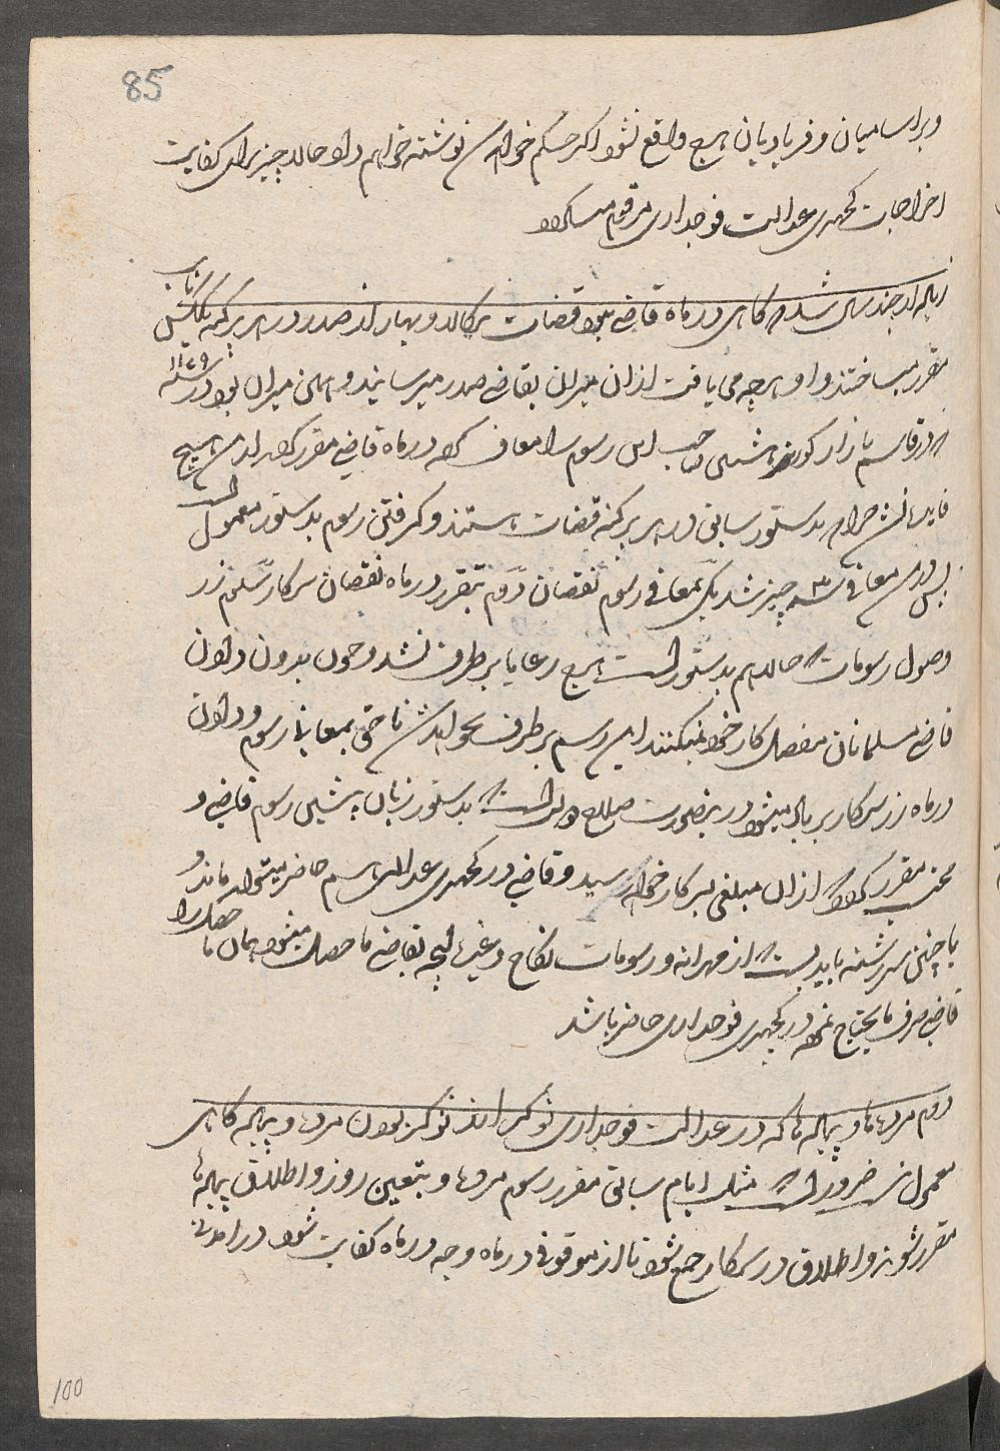 85
و بر اسامیان و فریادیان هیچ واقع نشود اگر حکم خواهد شد نوشته خواهم داد حالا چیز برای کفایت
اخراجات کچهری عدالت فوجداری مرقوم میگردد
چند سال شد که گاهی درماه قاضی نبود قضات بنگاله و بهار از صدر در هر پرگنه نایب
مقرر میساختند و او هرچه می یافت از آن میزان بقاضی صدر میرسانید و همین میزان بود در سنه ۱۱۷۹
در قاسم بازار کورنر صاحب این رسوم را معاف کرده درماه قاضی مقرر کردند هیچ
فایده نشد بدستور سابق در هر پرگنه قضات هستند و گرفتن رسوم بدستور معمول است
پس درین معافی سه چیز شد یک بمعافی رسوم نقصان دوم بتقرر درماه نقصان سرکار سوم زر
وصول رسومات که حالا هم بدستور است هیچ رعایا برطرف نشد و چون بدون دادن
قاضی مسلمانان مفصل کار خود نمیکنند این رسم برطرف نخواهد شد ناحق بمعافی رسوم و دادن
درماه زر سرکار برباد میشود درینصورت صلاح دولت است که بدستور زمان پیشین رسوم قاضی و
مقرر گردد که از آن مبلغی بسرکار خواهد رسید و قاضی در کچهری عدالت هم حاضر میتواند ماند و
یا چنین سررشته باید بست که از مهرانه و رسومات نکاح و غیره آنچه بقاضی ها حاصل میشود همان ها حاصل را
قاضی صرف مایحتاج نموده در کچهری فوجداری حاضر باشد
دوم مردها و پیاده ها که در عدالت فوجداری نوکر اند نوکر بودن مردها و پیاده گاهی
معمول نیست ضرور است که مثل ایام سابق مقرر رسوم مردها و بتعین روز و اطلاق پیاده ها
مقرر شود و اطلاق در سرکار جمع شود تا از موقوفی درماه وجه درماه کفایت شود
100